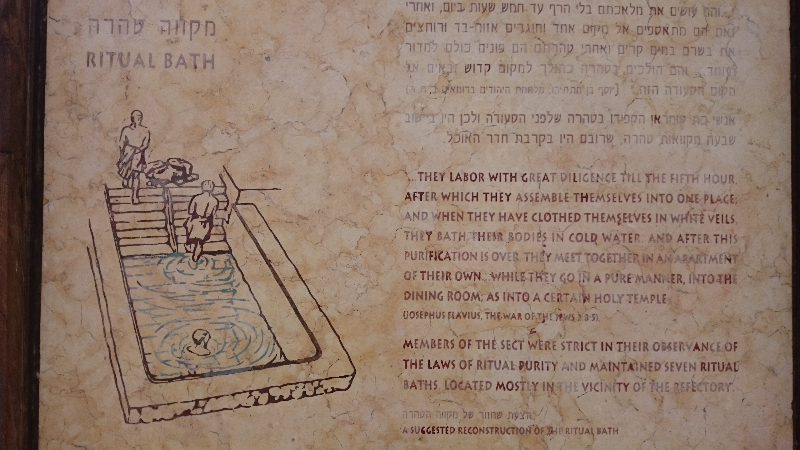 מקווה טהרה
RITUAL BATH
...והם עושים את מלאכתם בלי הרף עד חמש שעות ביום, ואחרי
זאת הם מתאספים אל מקום אחד וחוגרים אזור-בד ורוחצים
את בשרם במים קרים ואחרי טהרתם הם פונים כולם למדור
מיוחד... והם הולכים בטהרה כהולך למקום קדוש ובאים אל
מקום הסעודה הזה." (יוסף בן מתתיהו, מלחמת היהודים ברומאים ב,
אנשי כת קומראן הקפידו בטהרה שלפני הסעודה ולכן היו ביישוב
שבעת מקוואות טהרה, שרובם היו בקרבת חדר האוכל.
"...THEY LABOR WITH GREAT DILIGENCE TILL THE FIFTH HOUR,
AFTER WHICH THEY ASSEMBLE THEMSELVES INTO ONE PLACE,
AND WHEN THEY HAVE CLOTHED THEMSELVES IN WHITE VEILS,
THEY BATH THEIR BODIES IN COLD WATER. AND AFTER THIS
PURIFICATION IS OVER, THEY MEET TOGETHER IN AN APARTMENT
OF THEIR OWN... WHILE THEY GO IN A PURE MANNER, INTO THE
DINING ROOM, AS INTO A CERTAIN HOLY TEMPLE
(JOSEPHUS FLAVIUS, THE WAR OF THE JEWS 2.8:5).
MEMBERS OF THE SECT WERE STRICT IN THEIR OBSERVANCE OF
THE LAWS OF RITUAL PURITY AND MAINTAINED SEVEN RITUAL
BATHS, LOCATED MOSTLY IN THE VICINITY OF THE REFECTORY.
הצעת שחזור של מקווה הטהרה
A SUGGESTED RECONSTRUCTION OF THE RITUAL BATH